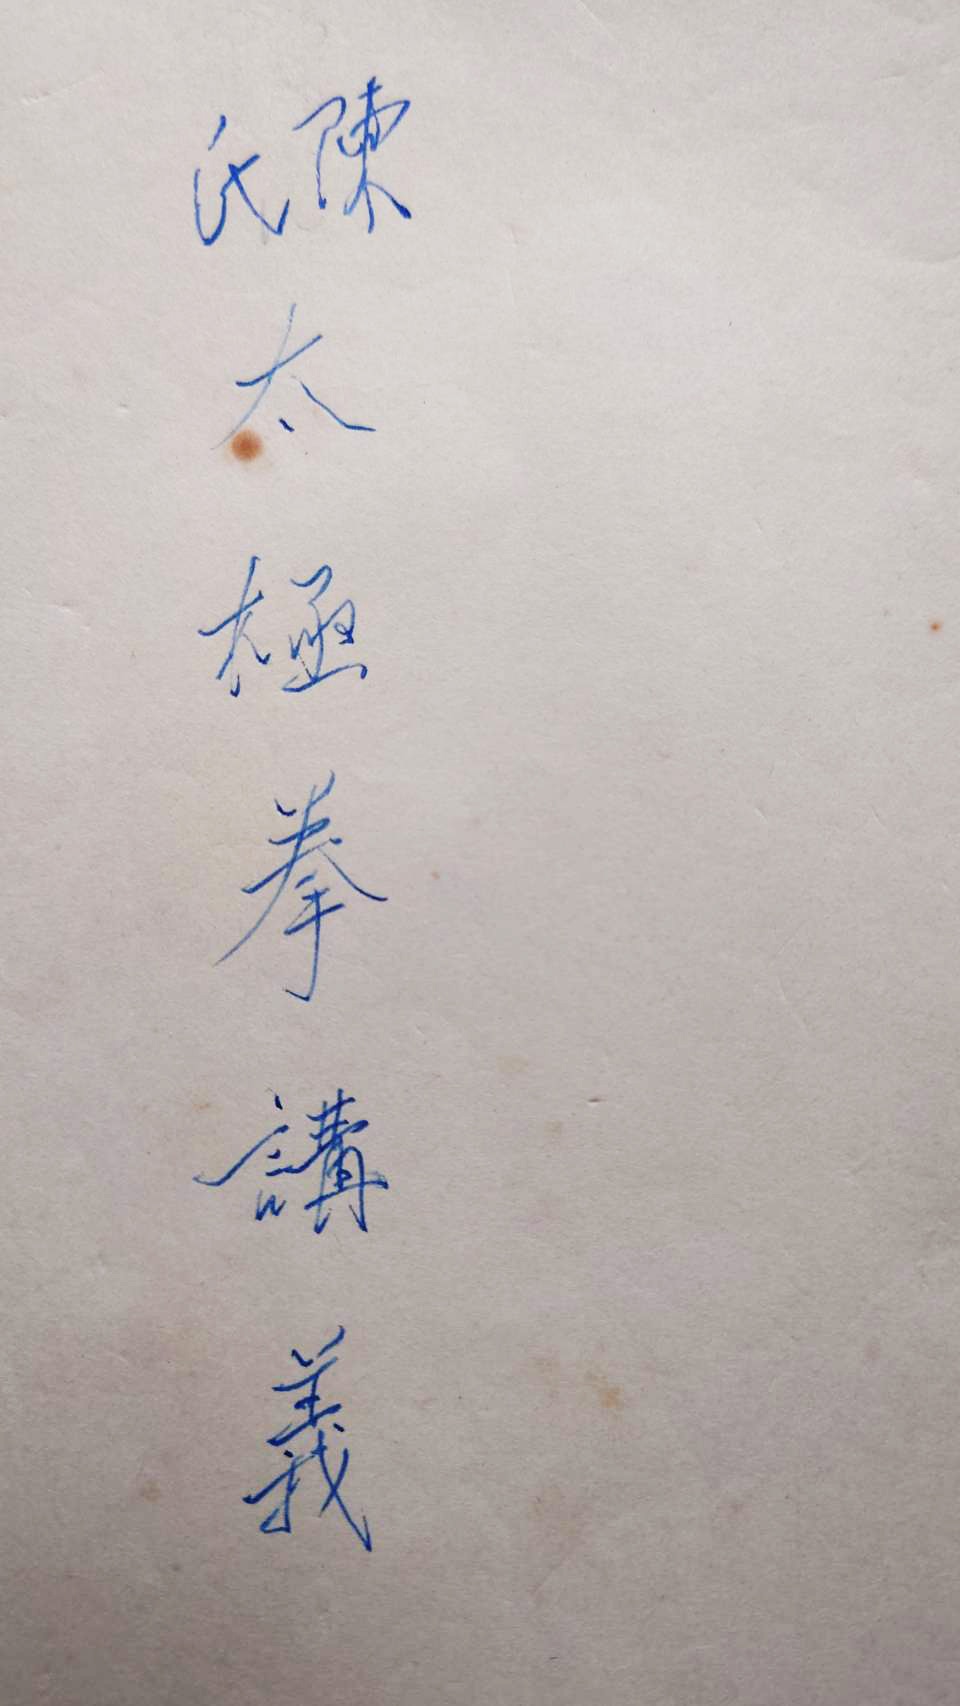 陳氏太極拳講義